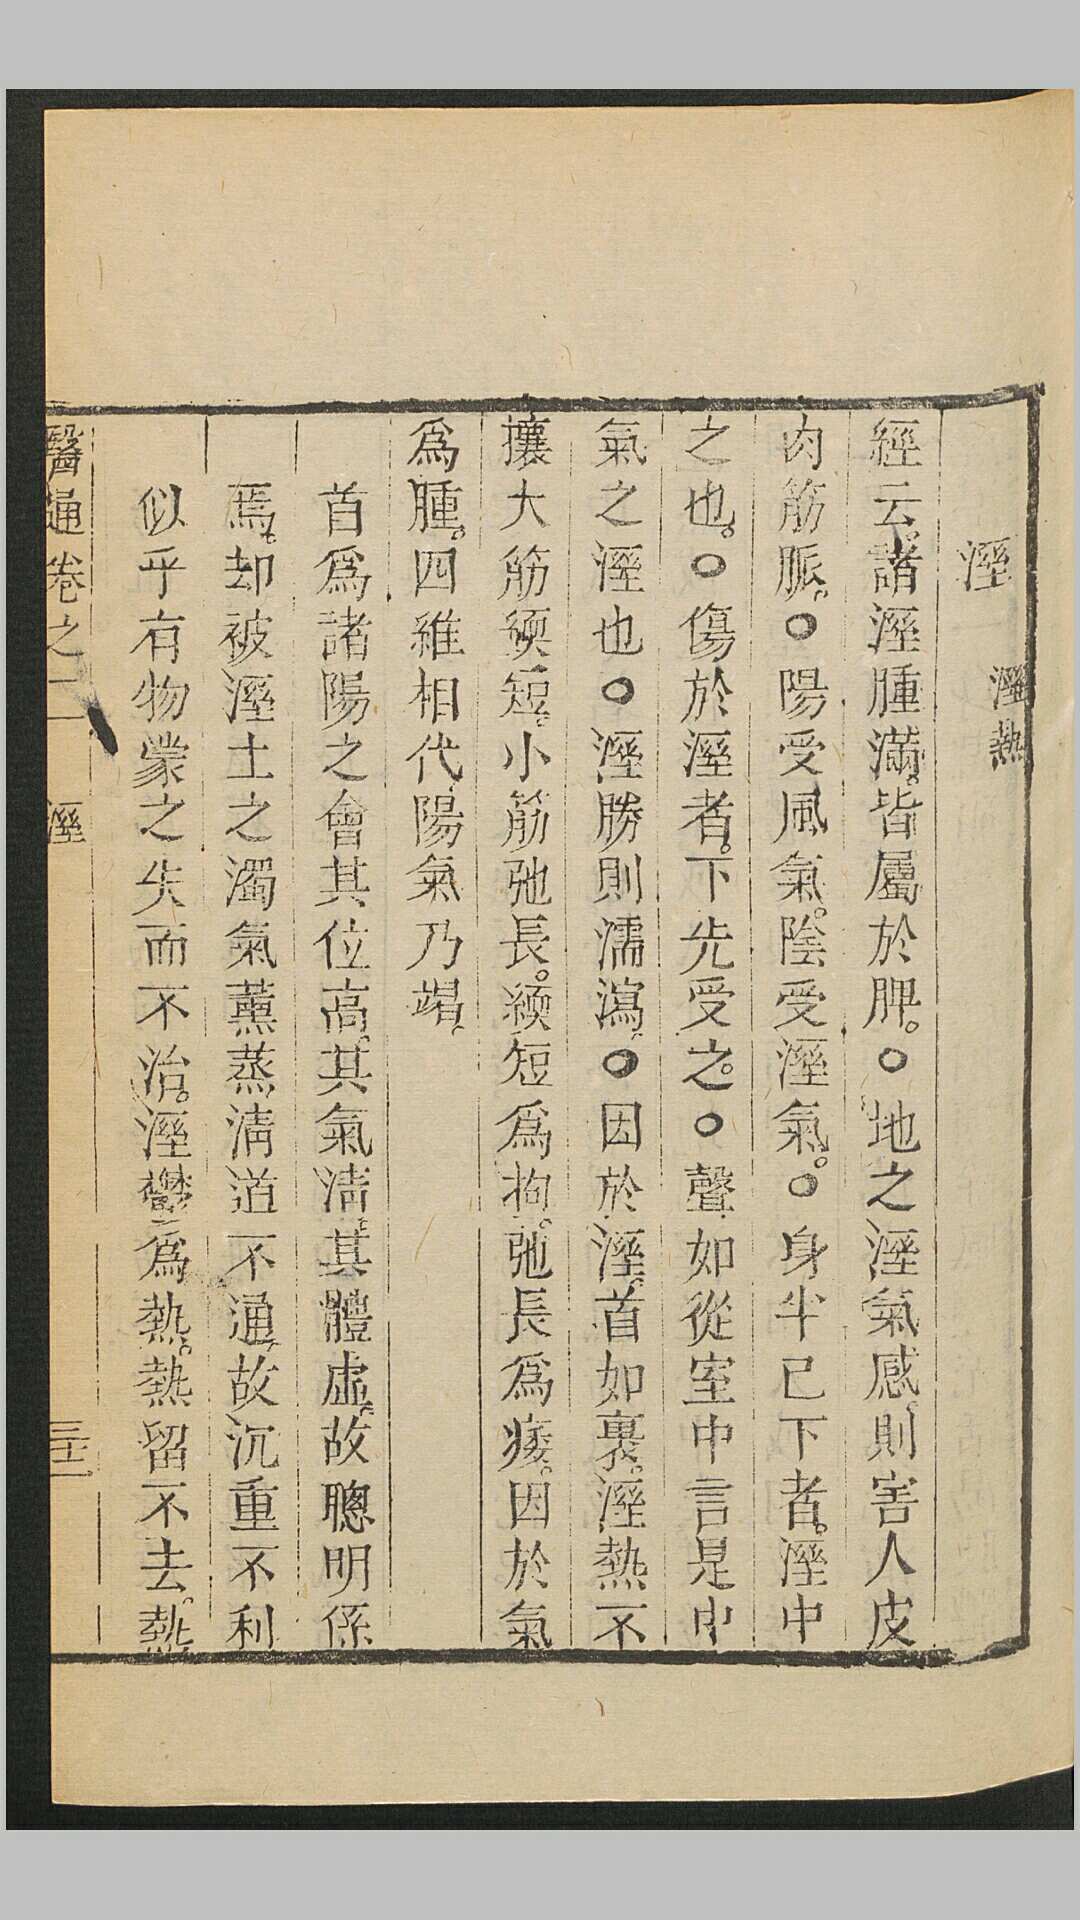 溼　溼熱
經云。諸溼腫滿。皆屬於脾。○地之溼氣感。則害人皮
肉筋脈。○陽受風氣。陰受溼氣。○身半已下者。溼中
之也。○傷於溼者。下先受之。○聲如從室中言是中
氣之溼也○溼勝則濡瀉。○因於溼。首如裹。溼熱不
攘大筋緛短。小筋弛長。緛短爲拘。弛長爲痿。因於氣
爲腫。四維相代。陽氣乃竭。
首爲諸陽之會其位高。其氣淸。其體虛。故聰明係
焉。却被溼土之濁氣薰蒸淸道不通。故沉重不利
似乎有物蒙之失而不治。溼鬱爲熱。熱留不去。熱
醫通卷之二　溼　三十一